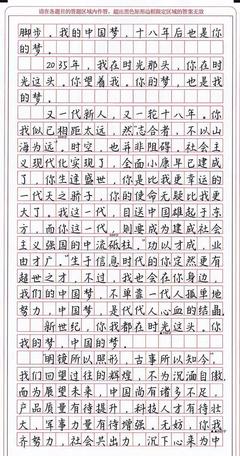 请在各题目的答题区域内作答，超出黑色矩形边框限定区域的答案无效
脚步，我的中国梦，十八年后也是你
的梦。
2035年，我在时光那头，你在时
光这头。你望着我，你的梦，也是我
的梦。
又一代新人，又一轮十八年。你
我似已相距太远，然“志合者，不以山
海为远”。时空，也并非阻碍。社会主
义现代化实现了，全面小康早已建成
了，你生逢盛世，你是比我更幸运的
一代天之骄子，你的使命无疑比我更
大了。我这一代，目送中国雄起于东
方，而你这一代，则要成为建成社会
主义强国的中流砥柱。“功以才成，业
由才广。”生于信息时代的你定然更有
超世之才，不过，我也会在你身边，
我们的中国梦，不单靠一代人孤单地
努力，中国梦，是代代人心血的结晶。
新世纪，你我都在时光这头。你
我的梦，中国的梦。
“明镜所以照形，古事所以知今”，
我们回望过往的辉煌，不为沉湎自傲，
而为展望未来，中国尚有诸多不足，
产品质量有待提升，科技人才有待壮
大，军事力量有待增强，无妨，你我
齐努力，社会共出力，沉下心来为中